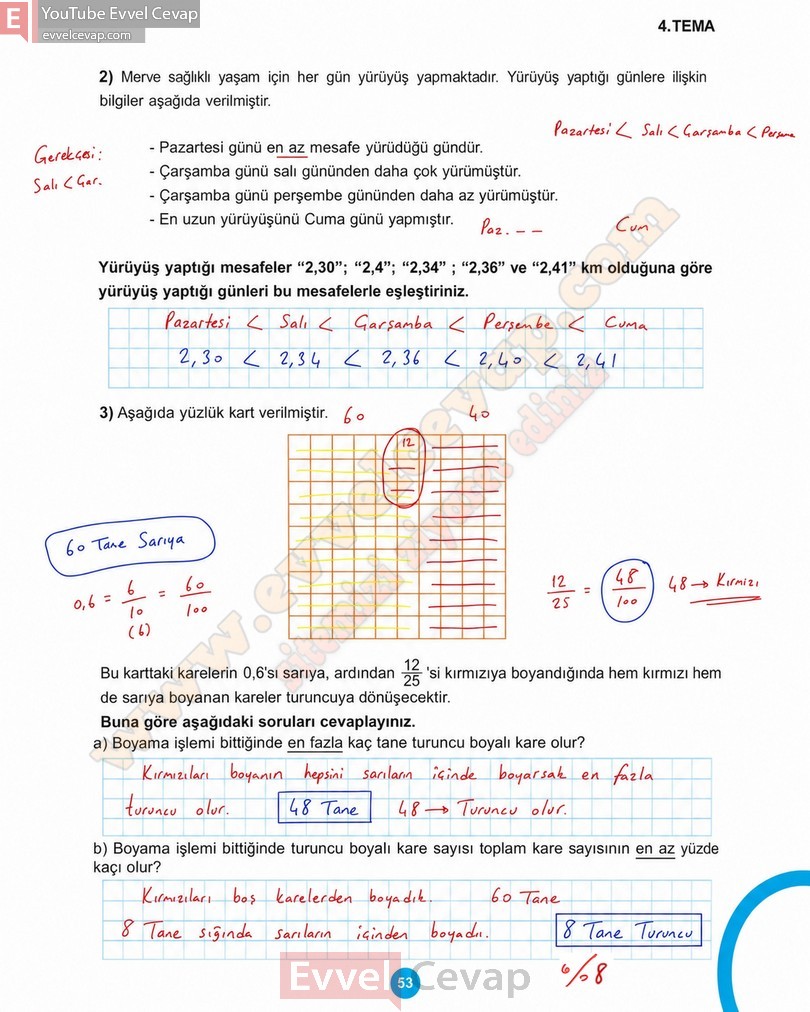 E YouTube Evvel Cevap
evvelcevap.com
4.TEMA
2) Merve sağlıklı yaşam için her gün yürüyüş yapmaktadır. Yürüyüş yaptığı günlere ilişkin
bilgiler aşağıda verilmiştir.
Pazartesi < Salı < Çarşamba < Perşembe
Gerekçesi:
Salı < Çar.
- Pazartesi günü en az mesafe yürüdüğü gündür.
- Çarşamba günü salı gününden daha çok yürümüştür.
- Çarşamba günü perşembe gününden daha az yürümüştür.
- En uzun yürüyüşünü Cuma günü yapmıştır.
Paz. - - Cum
Yürüyüş yaptığı mesafeler “2,30”; “2,4”; “2,34” ; “2,36” ve “2,41” km olduğuna göre
yürüyüş yaptığı günleri bu mesafelerle eşleştiriniz.
Pazartesi < Salı < Çarşamba < Perşembe < Cuma
2,30 < 2,34 < 2,36 < 2,40 < 2,41
3) Aşağıda yüzlük kart verilmiştir. 60 40
12
60 Tane Sarıya
0,6 = 6/10 = 60/100
(6)
12/25 = 48/100 48 → Kırmızı
www.evvelcevap.com
sitemizi ziyaret ediniz
Bu karttaki karelerin 0,6'sı sarıya, ardından 12/25 'si kırmızıya boyandığında hem kırmızı hem
de sarıya boyanan kareler turuncuya dönüşecektir.
Buna göre aşağıdaki soruları cevaplayınız.
a) Boyama işlemi bittiğinde en fazla kaç tane turuncu boyalı kare olur?
Kırmızıları boyanın hepsini sarıların içinde boyarsak en fazla
turuncu olur. 48 Tane 48 → Turuncu olur.
b) Boyama işlemi bittiğinde turuncu boyalı kare sayısı toplam kare sayısının en az yüzde
kaçı olur?
Kırmızıları boş karelerden boyadık. 60 Tane
8 Tane sığında sarıların içinden boyadıı. 8 Tane Turuncu
%8
Evvel Cevap
53